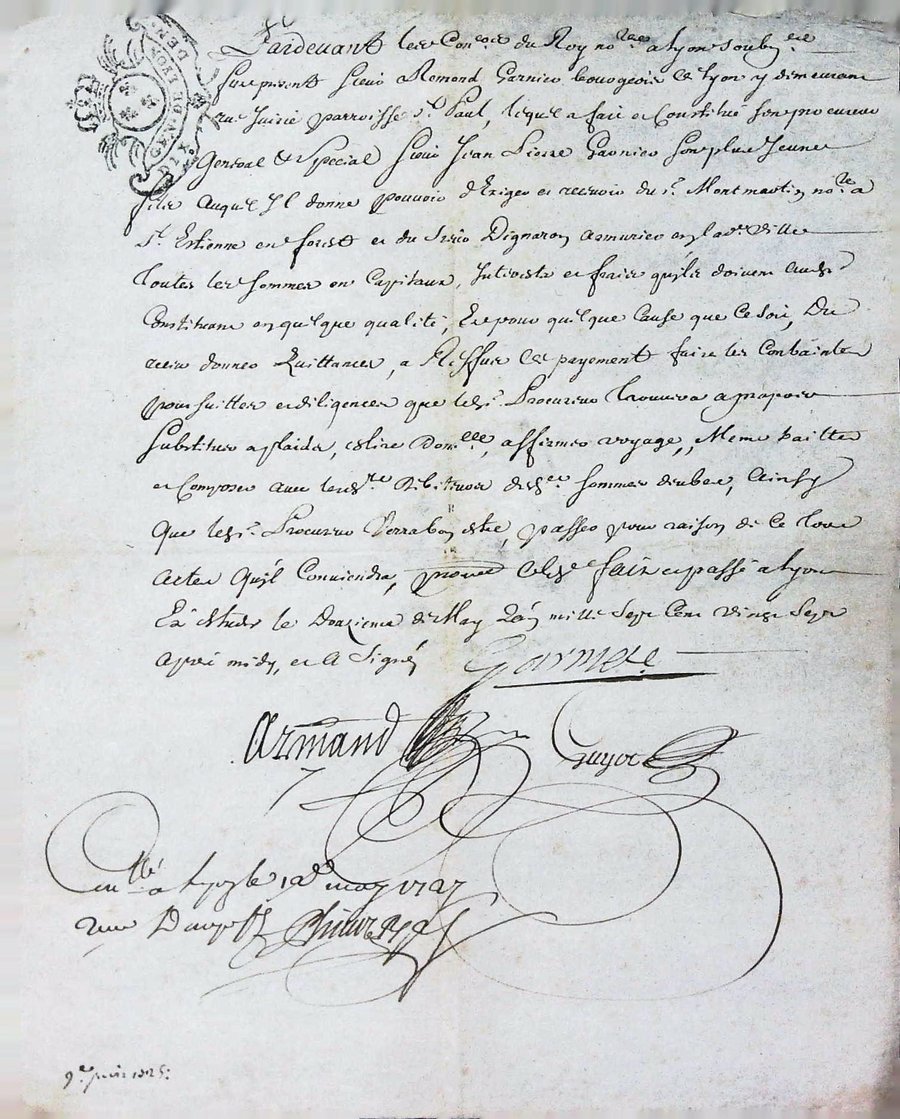 GEN DE LYON
DIX DEN
Pardevant les Con.ers du Roy no.res a Lyon soub.nés
fut present Sieur Remond Garnier bourgeois de Lyon y demeurant
rue Juirie parroisse S.t Paul, lequel a fait et Constitué son procureur
General & Special Sieur Jean Pierre Garnier son plus Jeune
fils Auquel Il donne pouvoir d'Exiger et recevoir du s.r Montmartin no.re a
S.t Estienne en forest et du Dignaron Armurier en lad.e ville
Toutes les sommes en Capitaux, Interests et frais qu'ils doivent aud.
Constituant en quelque qualité, Et pour quelque Cause que ce soit, Du
receu donner Quittances, a deffaut de payement faire les Contraintes
poursuittes et diligences que led.s.r Procureur Trouvera a propos
Substituer a plaids, eslire Dom.lle, affirmer voyage, Meme traitter
et Composer avec lesd. Debiteurs desd. sommes deubes, Ainsy
Que led.s.r Procureur Verra bon estre, passer pour raison de ce Tous
actes Qu'il Conviendra, fait et passé a Lyon
Es Etudes le Douzieme de May L'an mille Sept Cent Vingt Sept
apres midy, et a Signé, Garnier
Armand Guyot
Con.llé a Lyon le 12 may 1727